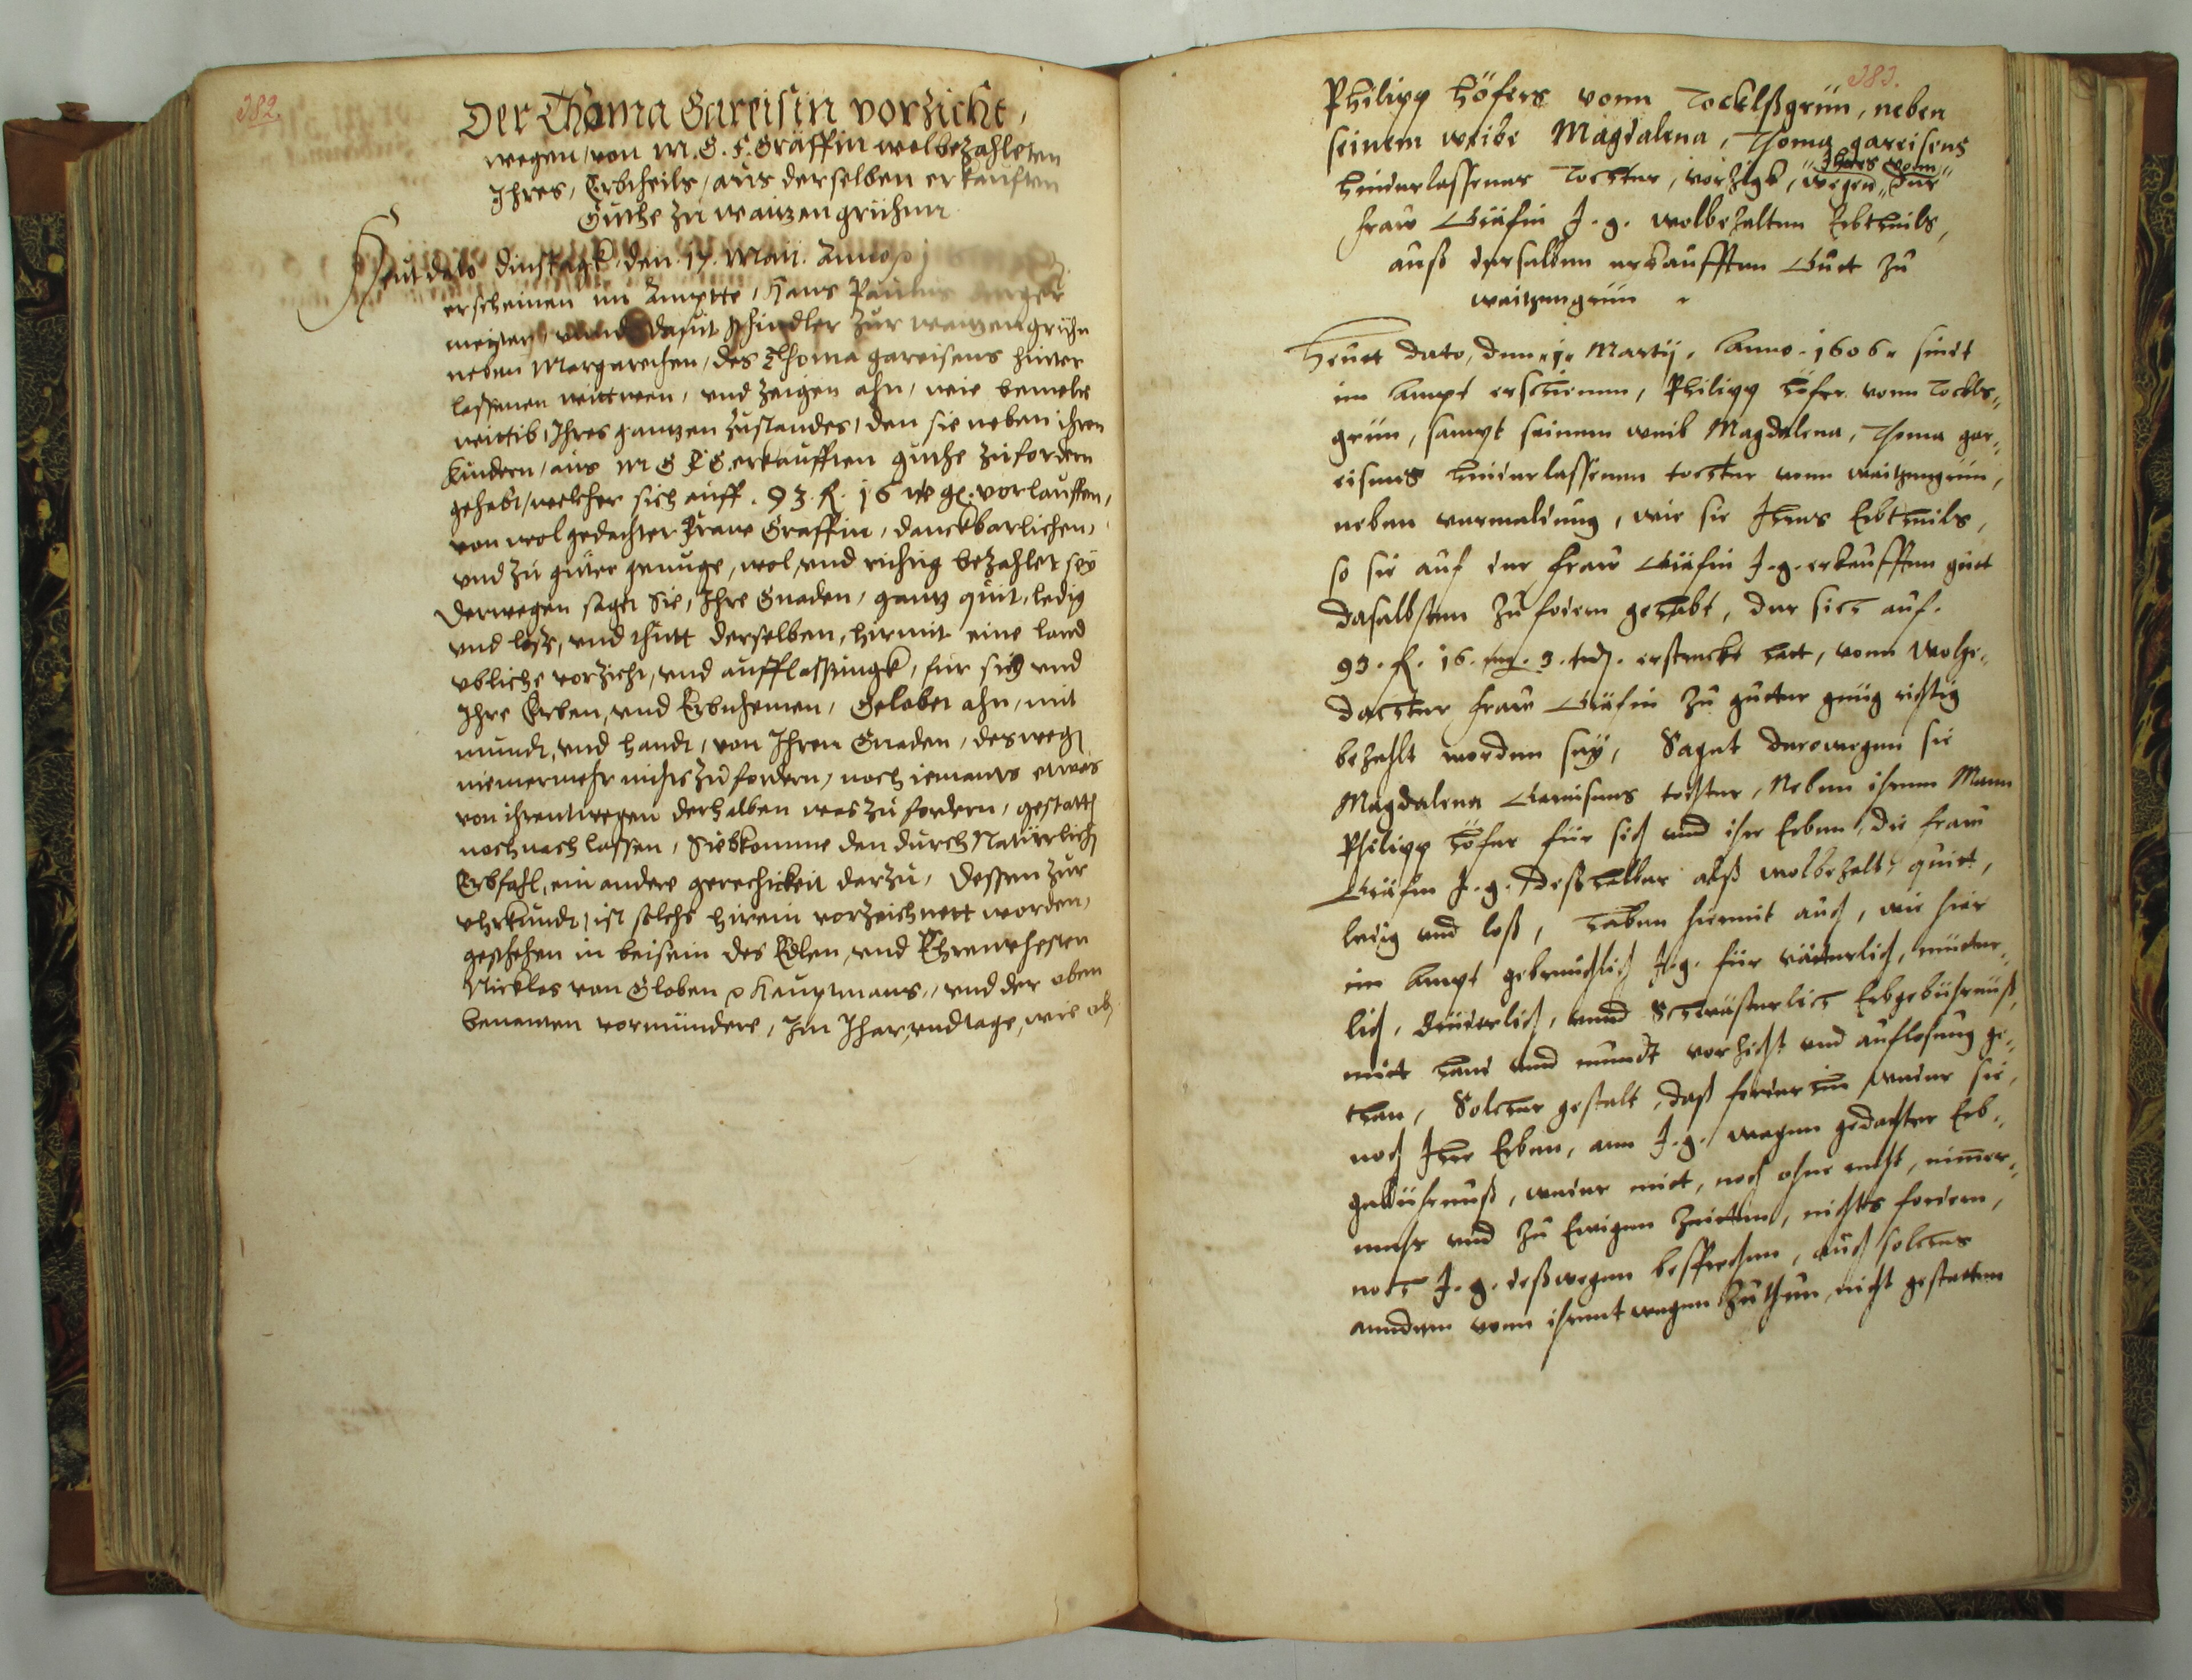 382.
Der Thoma Gareisin vorzicht,
wegen, von M. G. F. Gräffin wolbezahleten
Ihres, Erbtheils, aus derselben erkauften
Guthe zu waitzengrühnn
Heut dato dinstagk, den 17. Maii. Anno
erscheinen im Ampte, Hans Paulus
vnnd Schindler zur waitzengrühn
neben Margarethen, des Thoma gareisens hinter
lassenen wittwen, vnd zeigen ahn, wie bemelte
wittib, Ihres gantzen zustandes, den sie neben ihren
Kindern, aus M G F G. erkaufften guthe zufordern
gehabt, welcher sich auff. 93. fl. 16 gr. vorlauffen,
von wolgedachter Fraw Graffin, danckbarlichen,
vnd zu guter genuge, wol, vnd richtig bezahlet sey
Derwegen saget Sie, Ihre Gnaden, gantz quit, ledig
vnd loß, vnd thutt derselben, hirmit eine land
vbliche vorzicht, vnd aufflassungk, für sich vnd
Ihre Erben, vnd Erbnehmen, Gelobet ahn, mit
mundt, vnd handt, von Ihren Gnaden, deswegen
niemermehr nichts zu fordern, noch iemants etwas
von ihrentwegen derhalben was zu fordern, gestatten
noch nach lassen, Sie bekomme den durch Natürlichen
Erbfahl, ein andere gerechtickeit darzu, Dessen zur
vhrkundt, ist solchs hirein vorzeichnett worden,
geschehen in beisein des Edlen, vnd Ehrnvhesten
Nicklas von Globen Hauptmans, vnd der oben
benanten vormündere, Im Jhar, vnd tage, wie ob
383.
Philipp Höfers vonn Tocklßgrün, neben
seinem weibe Magdalena, Thoma gareisens
Ihres vonn
hinderlassener Tochter, vorzigk, wegen der
fraw Gräfin J. g. wolbezalten Erbtheils,
auß derselben erkaufften Gutt zu
waitzengrün
Heutt dato, den 1 Martij. Anno. 1606. sindt
im Ampt erschienen, Philipp Höfer vonn Tockls-
grün, sampt seinem weib Magdalena, Thoma gar-
eisens hinderlassenen tochter vonn waitzengrün,
neben vermeldung, wie sie Ihres Erbtheils,
so sie auf der fraw Gräfin J. g. erkaufften gutt
daselbsten zu fodern gehabt, der sich auf.
93. fl. 16. 3. erstreckt hatt, vonn wolge-
dachter fraw Gräfin zu gutter gnüg richtig
bezahlt worden sey, Saget derowegen sie
Magdalena Gareisens tochter, Neben ihrem Mann
Philipp Höfer für sich vnd ihre Erben, die fraw
Gräfin J. g. deßhalber alß wolbezalt, quitt,
ledig vnd loß, haben hiermit auch, wie hier
im Ampt gebreuchlich J. g. für väterlich, mütter-
lich, Brüderlich, vnnd Schwesterlich Erbgebührnüß,
mitt handt vnd mundt vorzicht vnd auflosung ge-
than, Solcher gestalt, daß forderhin weder sie,
noch Ihre Erben, ann J. g. wegen gedachter Erb-
gebührnuß, weder mitt, noch ohne recht, nimmer-
mehr vnd zu Ewigen zeitten, nichts fordern,
noch J. g. deßwegen besprechen, auch solches
anndern vonn ihrentwegen zuthun, nicht gestatten